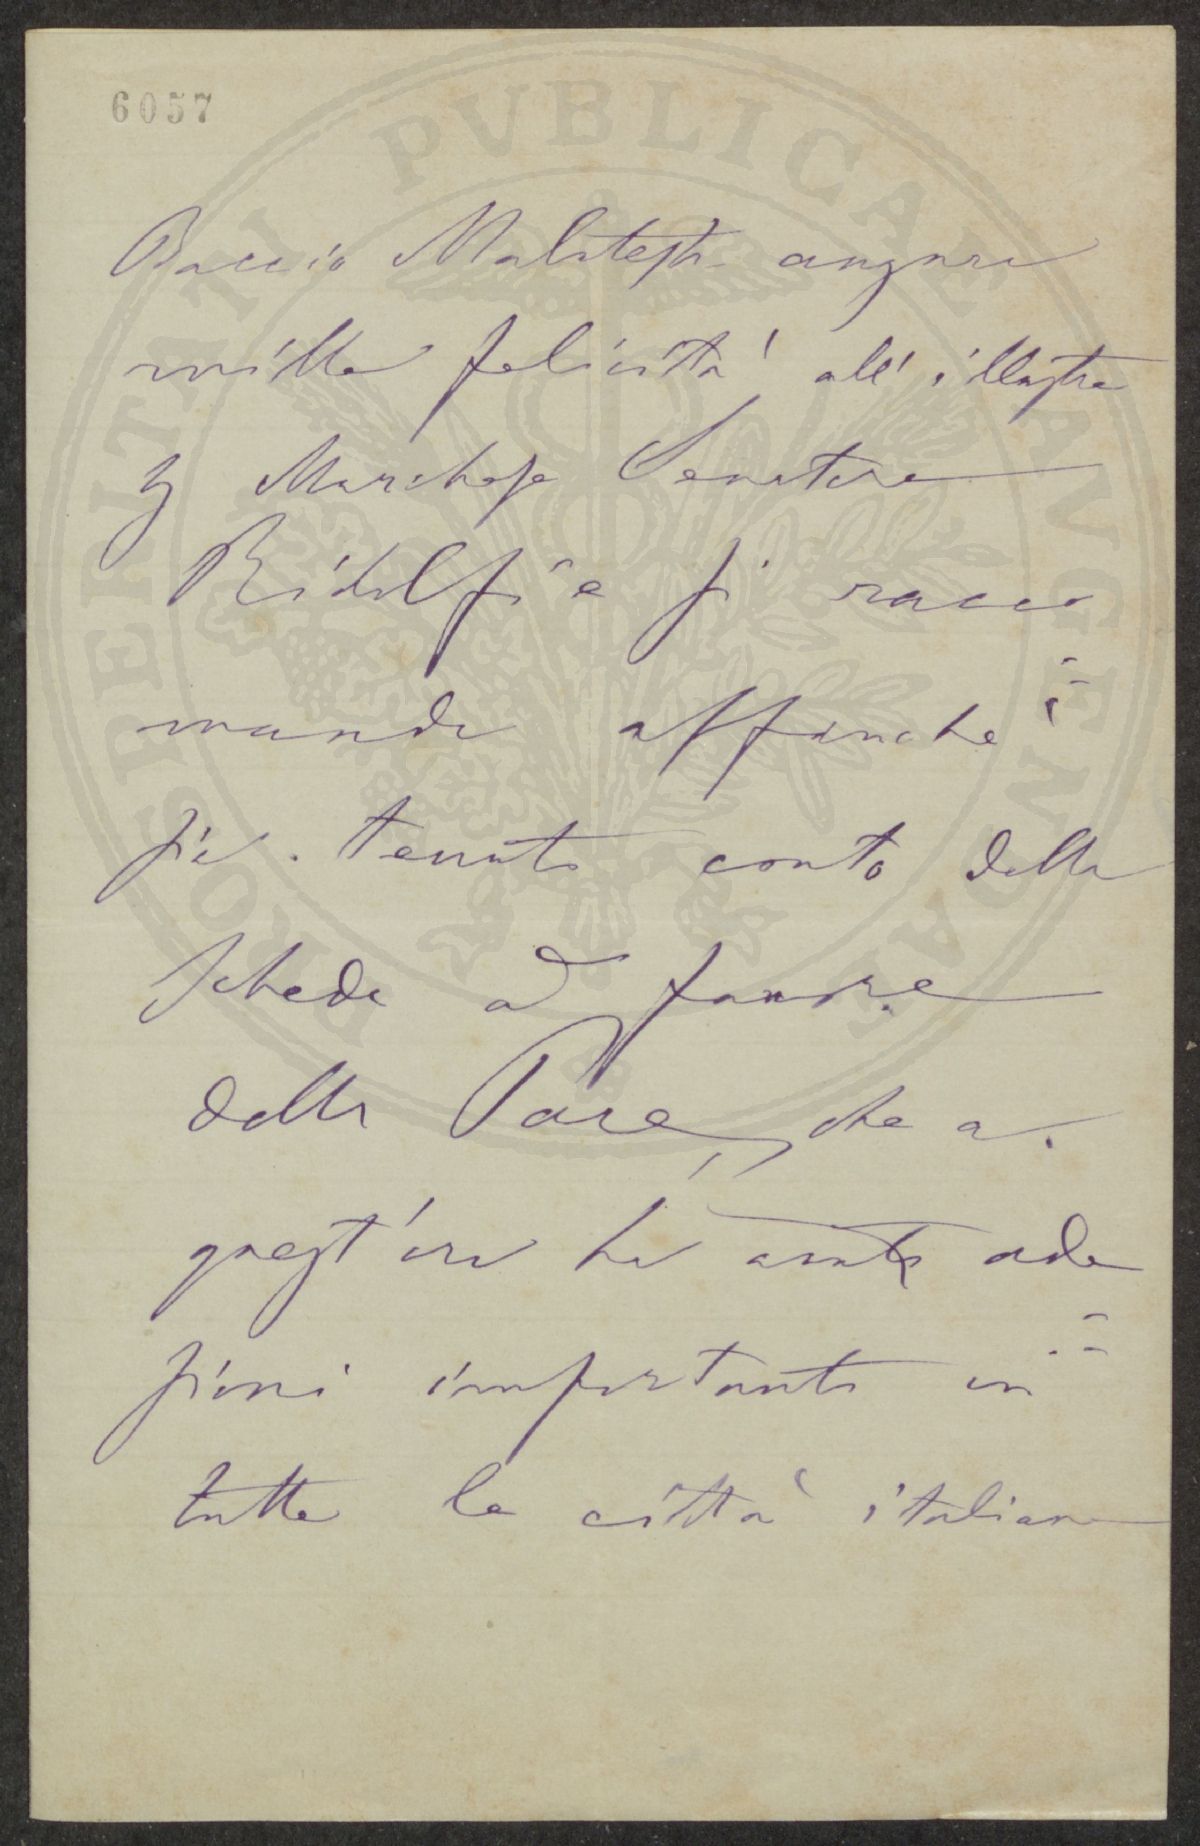 6057
PROSPERITATI PVBLICAE AVGENDAE
Baccio Malatesta augura
mille felicità all'illustre
Marchese Senatore
Ridolfi e si racco
manda affinchè
sia tenuto conto della
scheda a favore
della Pace, che a
quest'ora ha avuto ade
sioni importanti in
tutte le città italiane